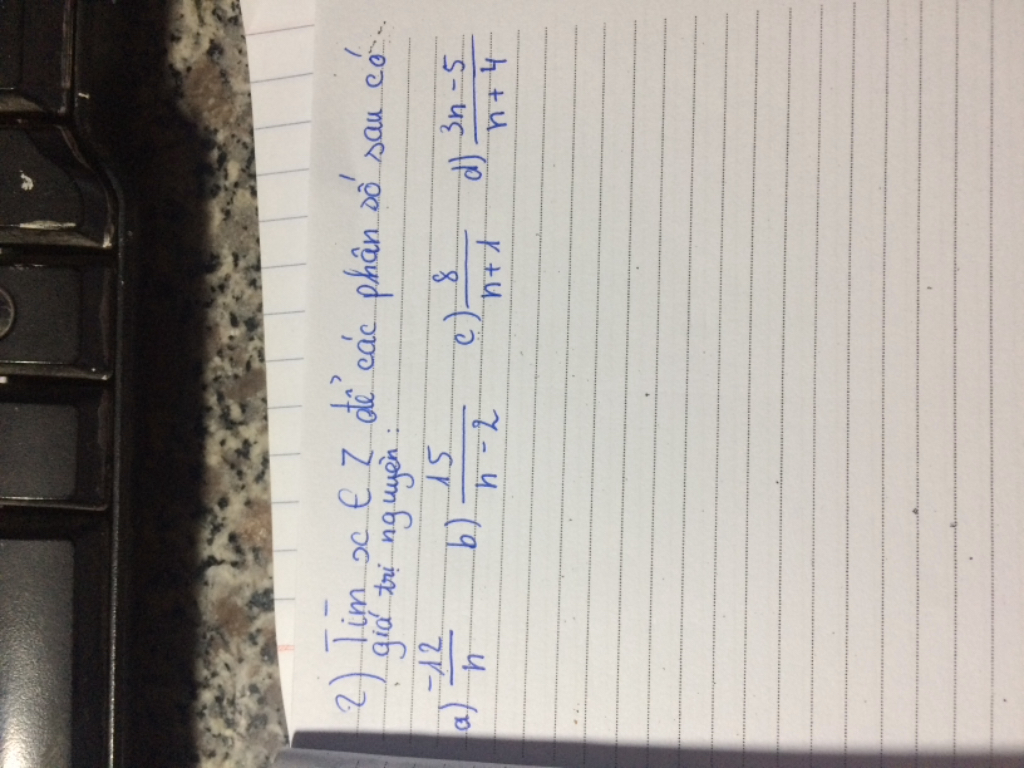 2) Tìm x ∈ Z để các phân số sau có
giá trị nguyên:
a) -12/n b) 15/n-2 c) 8/n+1 d) 3n-5/n+4